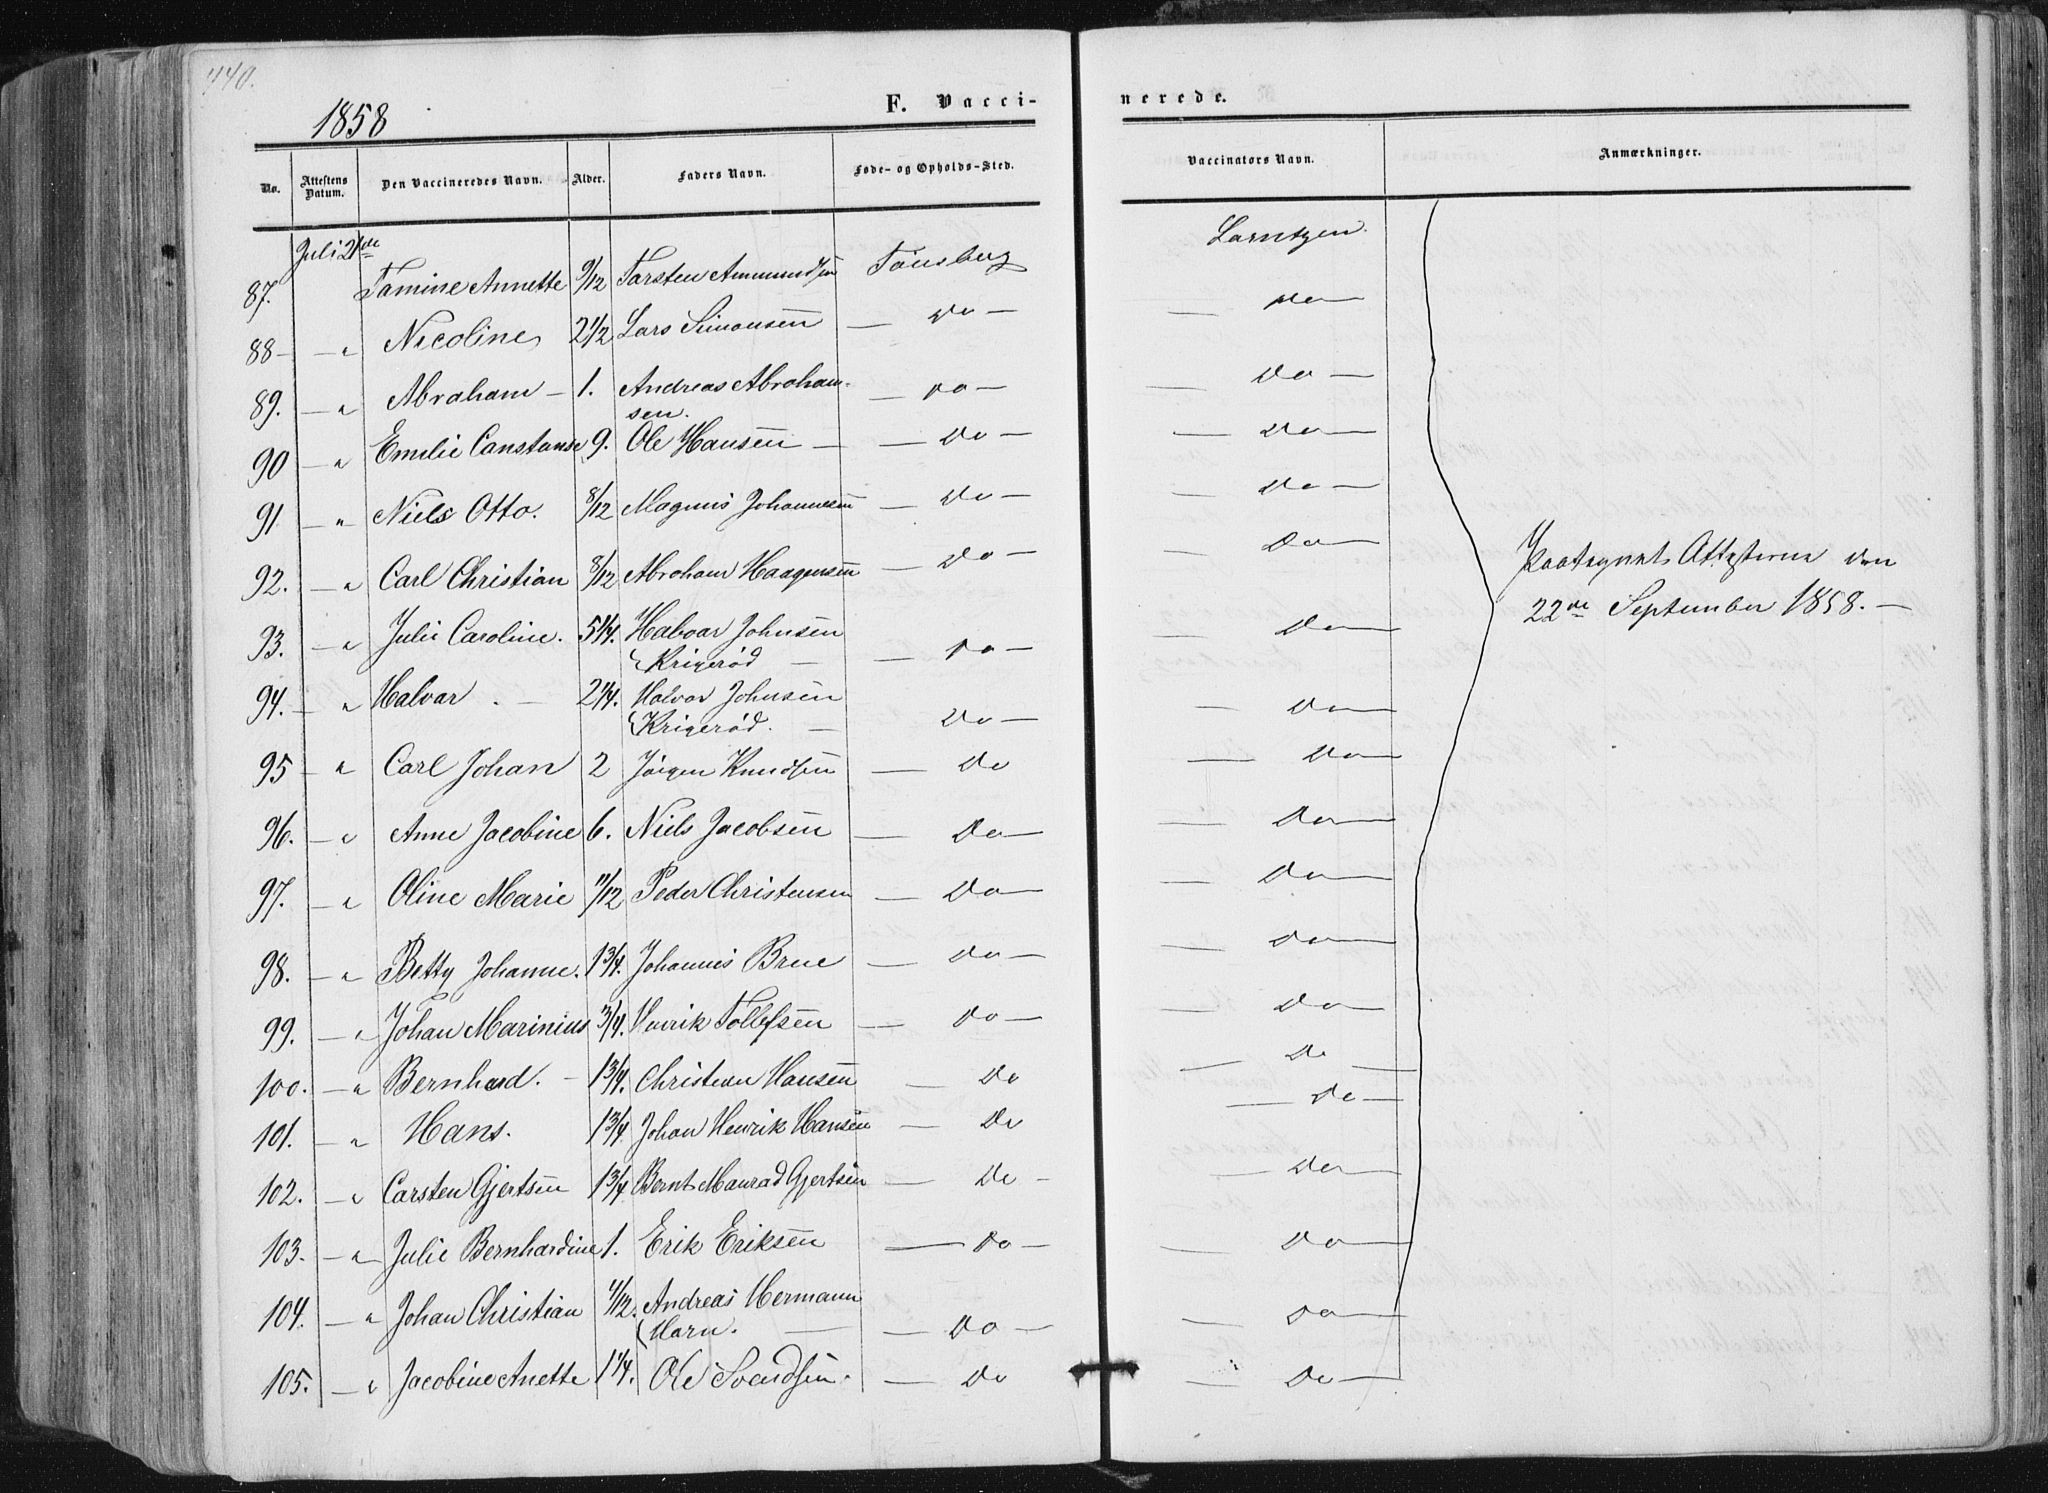 440.
1858
F. Vacci- nerede.
No. Attestens Datum. Den Vaccineredes Navn. Alder. Faders Navn. Føde- og Opholds-Sted. Vaccinators Navn. Anmærkninger.
Juli 21de
87. Tomine Annette 9/12 Torsten Ammundsen Tønsberg Lorntzen.
88 - — " Nicoline 2 1/2 Lars Simonsen — Do — — Do —
89. — " Abraham — 1. Andreas Abraham- — Do — — Do —
sen.
90 — " Emilie Constanse 9. Ole Hansen — — Do — — Do —
91. — " Niels Otto. 8/12 Magnus Johannesen — Do — — Do —
92. — " Carl Christian 8/12 Abraham Haagensen — Do — — Do —
Attesterne den
22de September 1858. —
93. — " Julie Caroline. 5 1/4. Halvor Johnsen
Krigerød — — Do — — Do —
94. — " Halvor . — 2 1/4. Halvor Johnsen
Krigerød. — Do — — Do —
95 — " Carl Johan 2 Jørgen Knudsen — Do — Do —
96. — " Anne Jacobine 6. Niels Jacobsen — Do — — Do —
97. — " Oline Marie 11/12 Peder Christensen — Do — — Do —
98. — " Betty Johanne. 1 3/4. Johannes Brue — Do — — Do —
99. — " Johan Marinius 3/4. Henrik Tollefsen — Do — — Do —
100. — " Bernhard. — 1 3/4. Christian Hansen — Do — Do —
101. — " Hans. 1 3/4 Johan Henrik Hansen — Do — Do —
102. — " Carsten Gjertsen 1 3/4 Bernt Manrad Gjertsen — Do — — Do —
103. — " Julie Bernhardine 1. Erik Eriksen — Do — — Do —
104. — " Johan Christian 4/12. Andreas Hermann
Horn. — — Do — — Do —
105. — " Jacobine Anette 1 1/4. Ole Svendsen. — Do — Do —